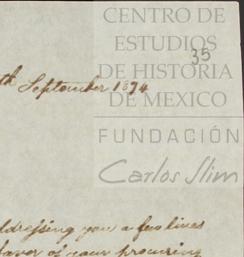 CENTRO DE
ESTUDIOS
35
DE HISTORIA
DE MEXICO
th September 1874
FUNDACIÓN
Carlos Slim
ddressing you a few lines
favor of your procuring